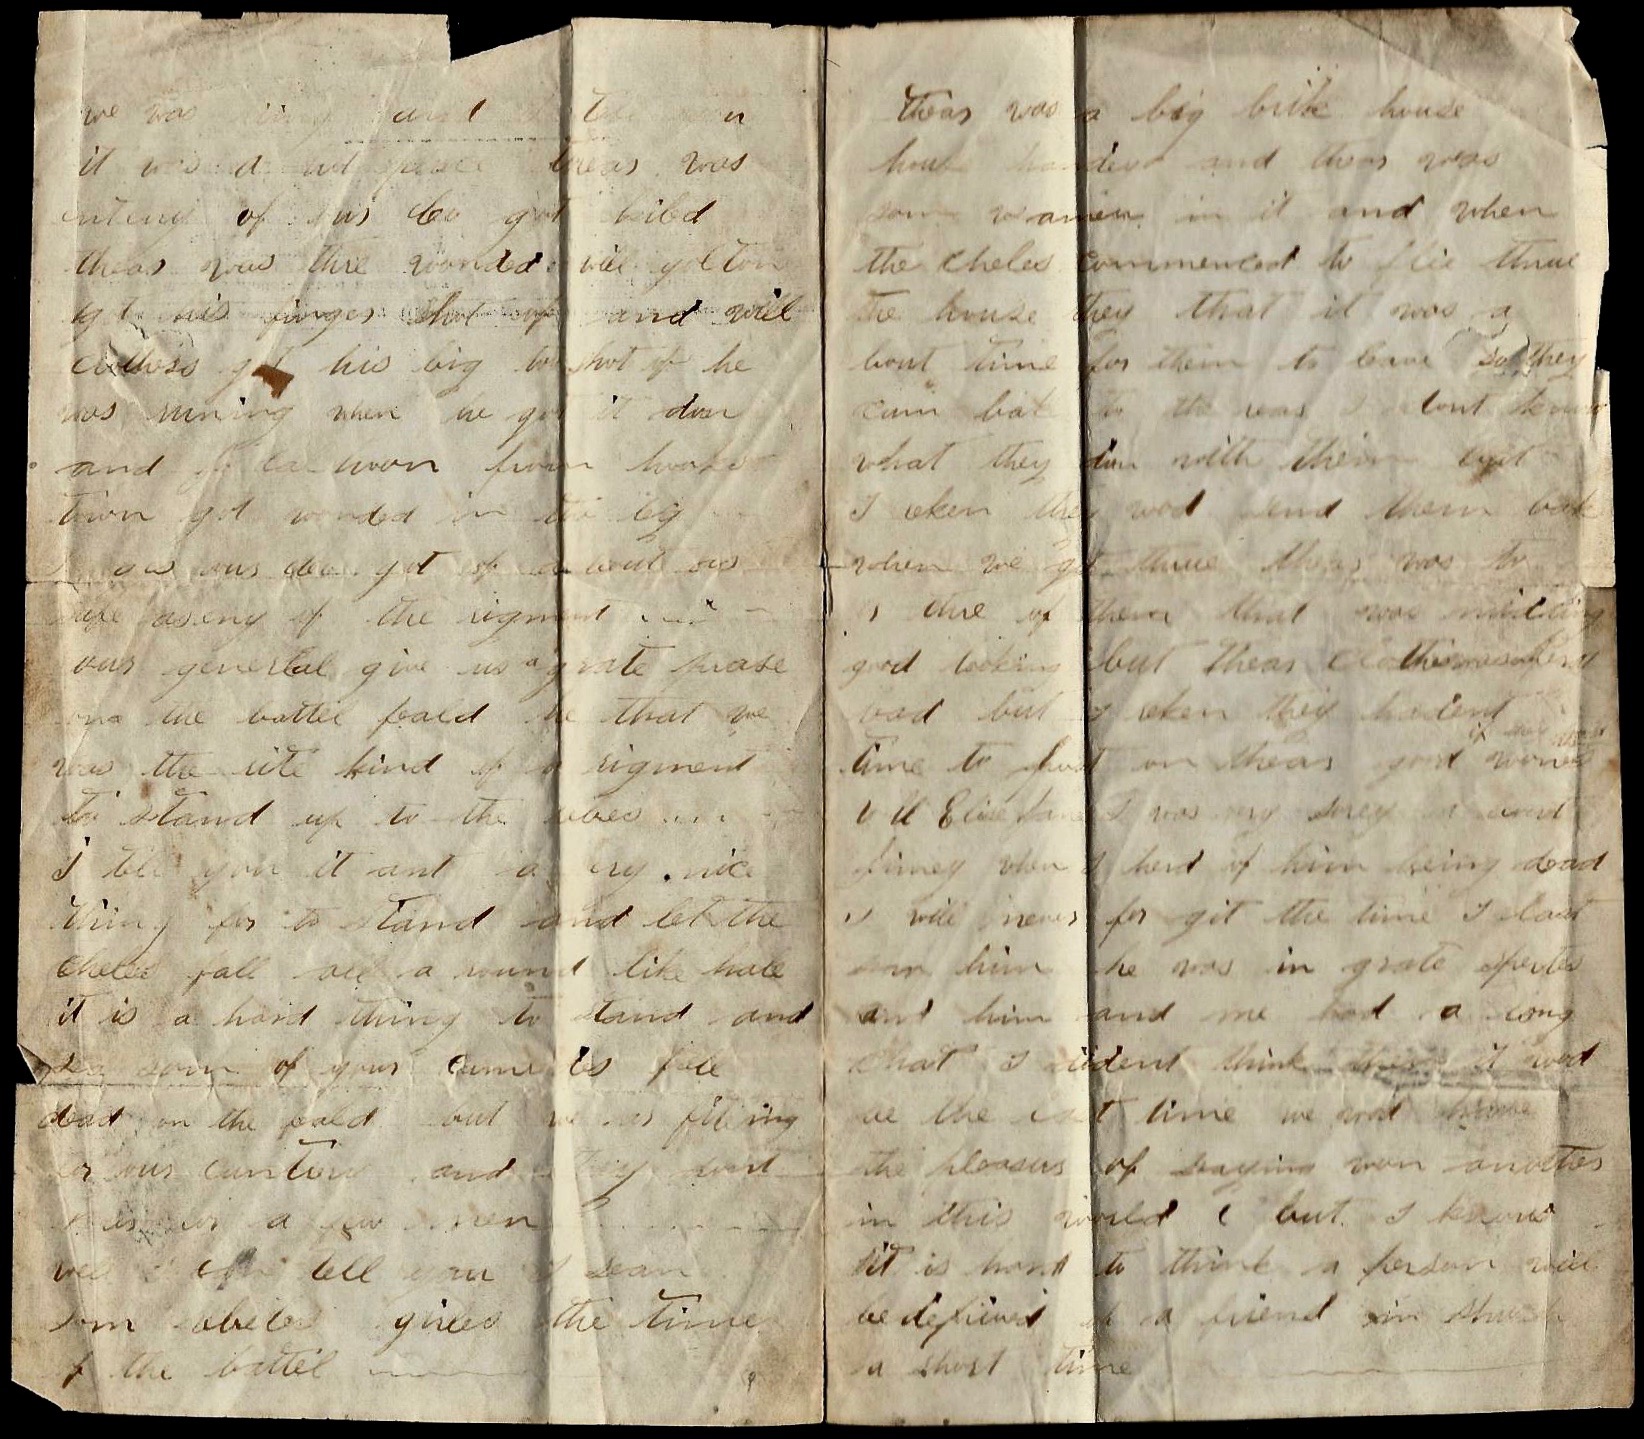 we was and
it was a hot place theas was
of our Co got kild
theas was thre wonded will yolton
got his finger shot of and will
got his big toe shot of he
was runing when he got it don
and won from hooks
town got wonded in the leg
our Co got of a bout as
safe as eny of the rigment
our generlal give us a grate prase
on the battel feald he that we
was the rite kind of a rigment
to stand up to the rebes
I tell you it ant a very nice
thing for to stand and let the
cheles fall all a round like hale
it is a hard thing to stand and
sea som of your fall
dead on the feald but we as fiteing
for our cuntire and they must
a few men
well I can tell you I sean
som rebeles gireles the time
of the battel
theas was a big brik house
and theas was
som wamen in it and when
the cheles commenced to flie thrue
the house they that it was a
bout time for them to leave so they
cum bak to the rear I dont know
what they don with them but
I reken they wod send them back
when we got thrue theas was to
or thre of them that was midling
good looking but theas clothes
bad but I reken they hadent
time to put on theas good wones
well Elisejane I was very sorey
finney when I herd of him being dead
I will never for git the time I last
saw him he was in grate sperites
and him and me had a long
chat I dident think then it wod
be the last time we wod have
the pleasur of seaying won another
in this world but I know
it is hard to think a person will
be deprived of a friend in such
a short time